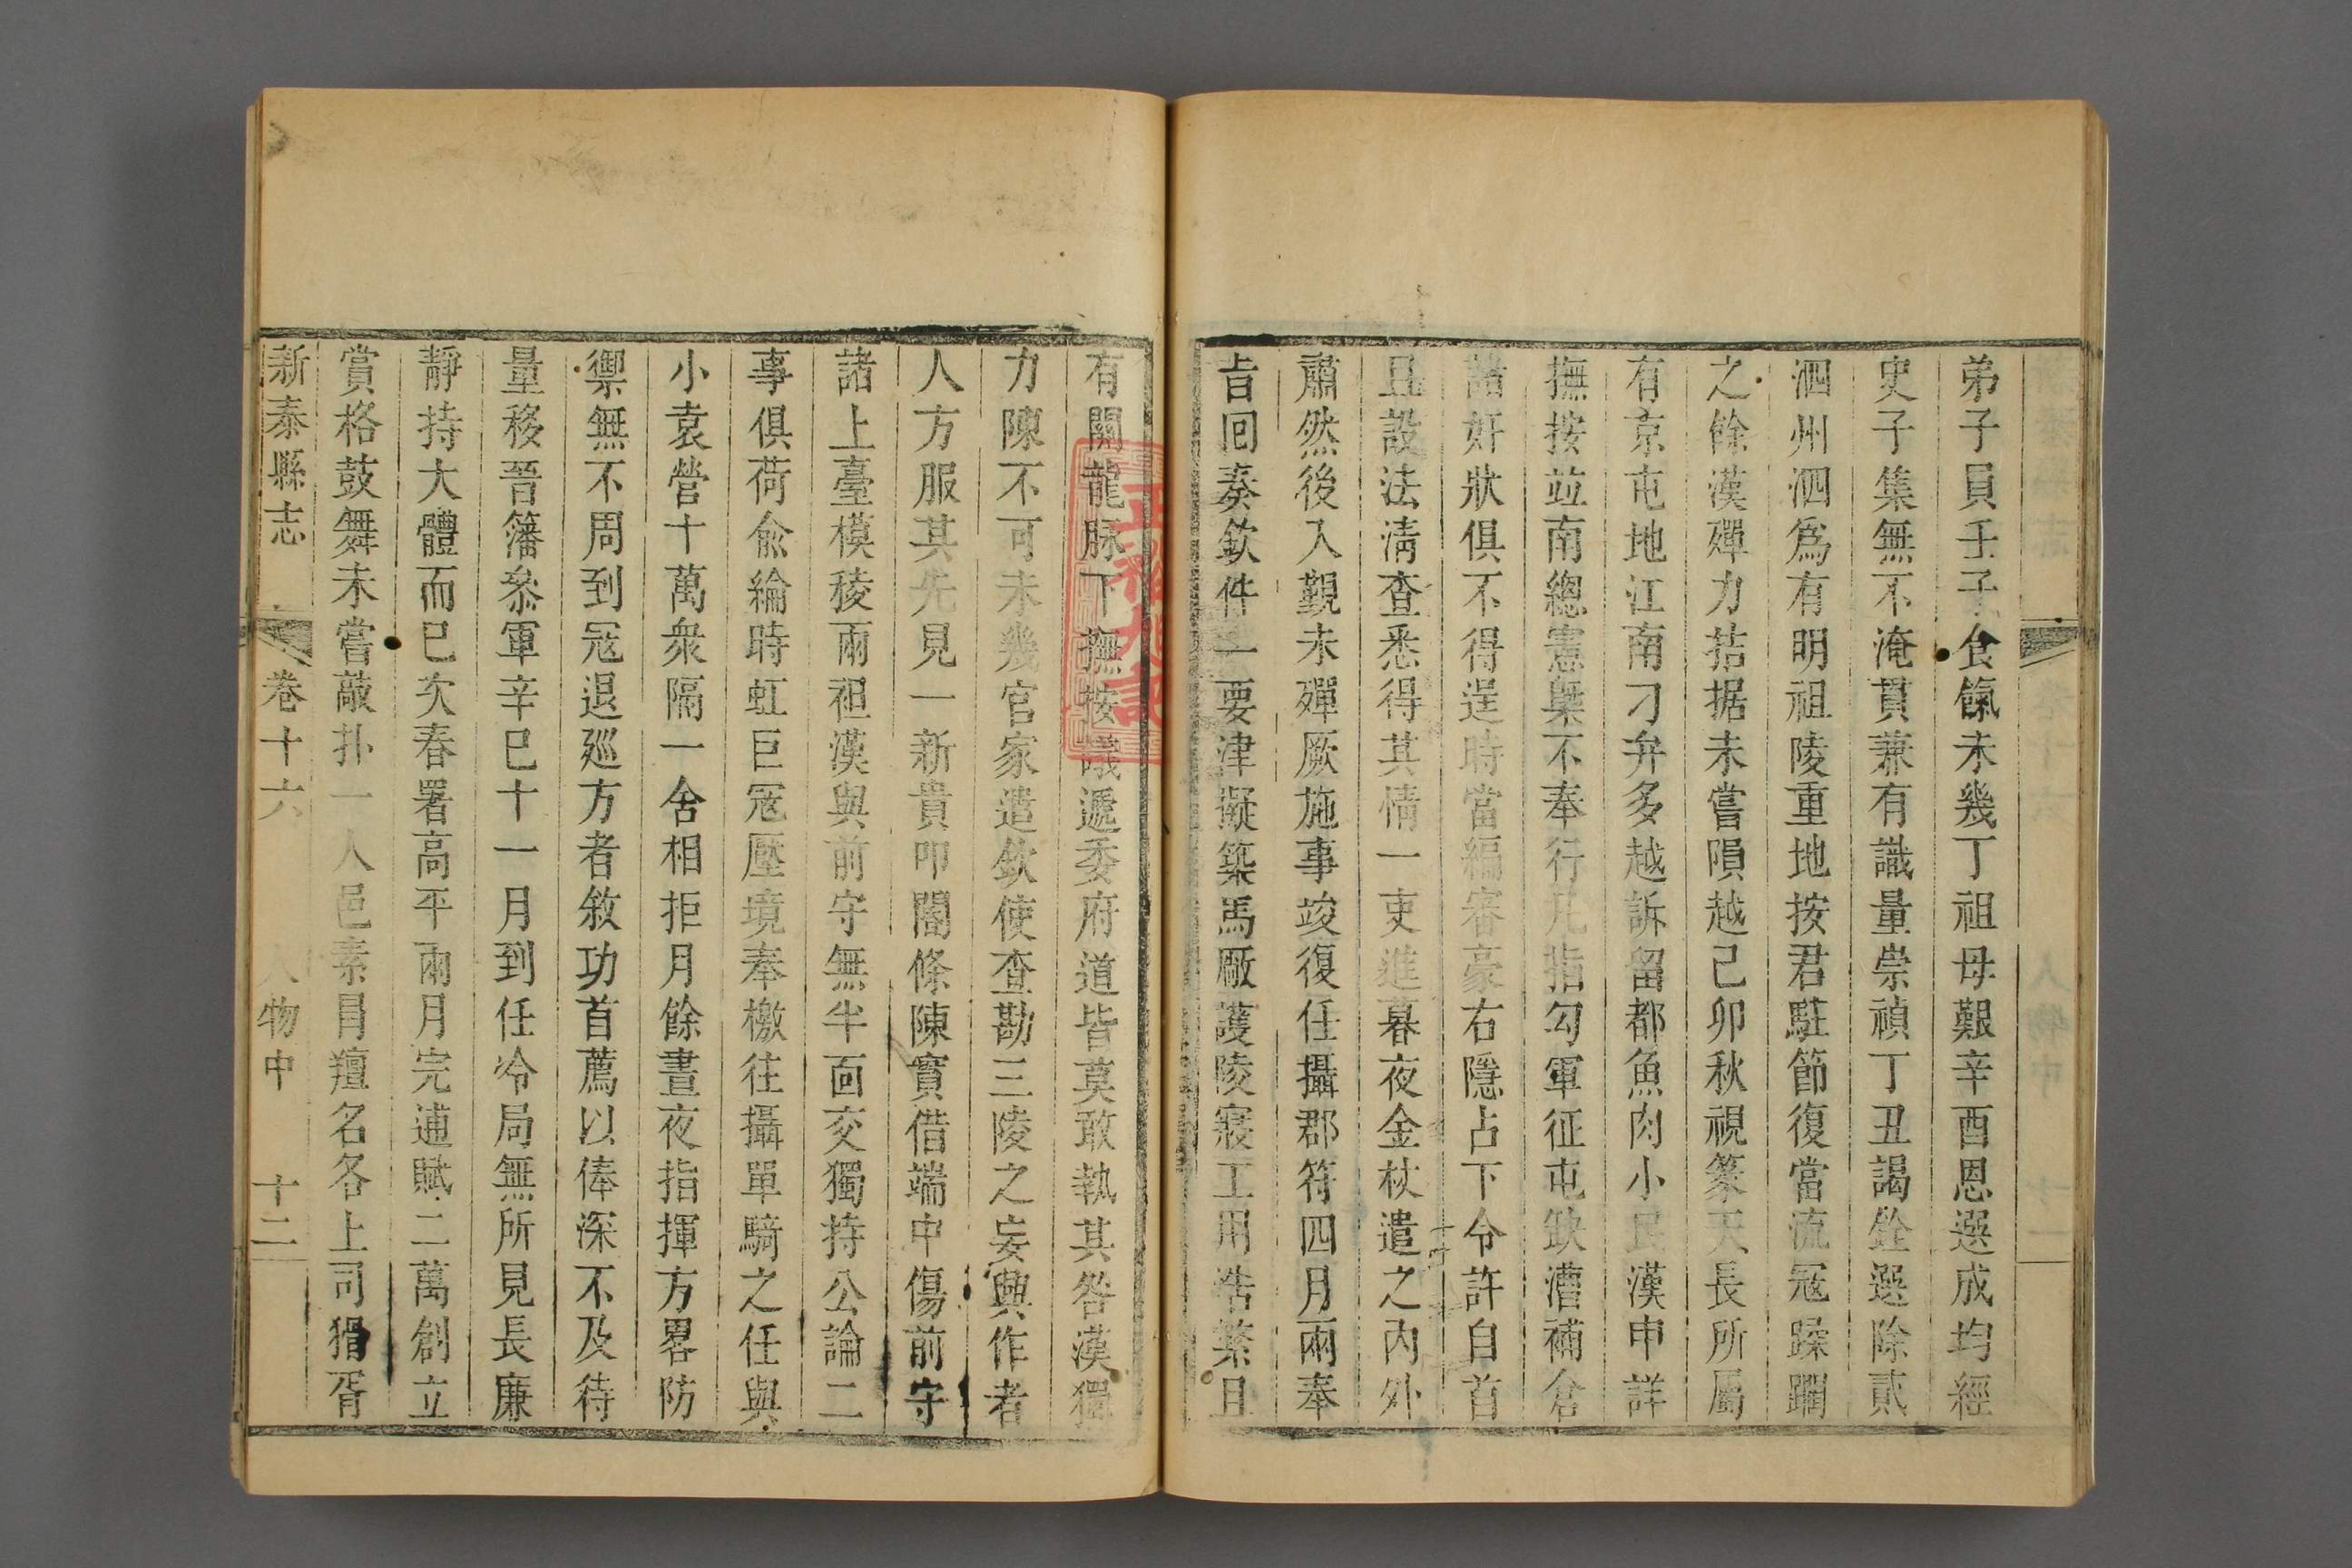 弟子員壬子食餼未幾丁祖母艱辛酉恩選成均經
史子集無不淹貫兼有識量崇禎丁丑謁銓選除貳
泗州泗爲有明祖陵重地按君駐節復當流冦蹂躪
之餘漢殫力拮据未嘗隕越己卯秋視篆天長所屬
有京屯地江南刁弁多越訴留都魚肉小民漢申詳
撫按並南總憲槩不奉行凡指勾軍征屯缺漕補倉
諸奸狀俱不得逞時當編審豪右隱占下令許自首
且設法淸查悉得其情一吏進暮夜金杖遣之內外
肅然後入覲未殫厥施事竣復任攝郡符四月兩奉
旨回奏欽件一要津擬築馬厰護陵寢工用浩繁且
有關龍脉下撫按議遞委府道皆莫敢執其咎漢獨
力陳不可未幾官家遣欽使查勘三陵之妄興作者
人方服其先見一新貴叩閽條陳實借端中傷前守
諸上臺模稜兩袒漢與前守無半面交獨持公論二
事俱荷兪綸時虹巨冦壓境奉檄往攝單騎之任與
小袁營十萬衆隔一舍相拒月餘晝夜指揮方畧防
禦無不周到冦退廵方者敘功首薦以俸深不及待
量移晉籓叅軍辛巳十一月到任冷局無所見長廉
靜持大體而已次春署高平兩月完逋賦二萬創立
賞格鼓舞未嘗敲扑一人邑素冐羶名各上司猾胥
新泰縣志 卷十六 人物中 十二